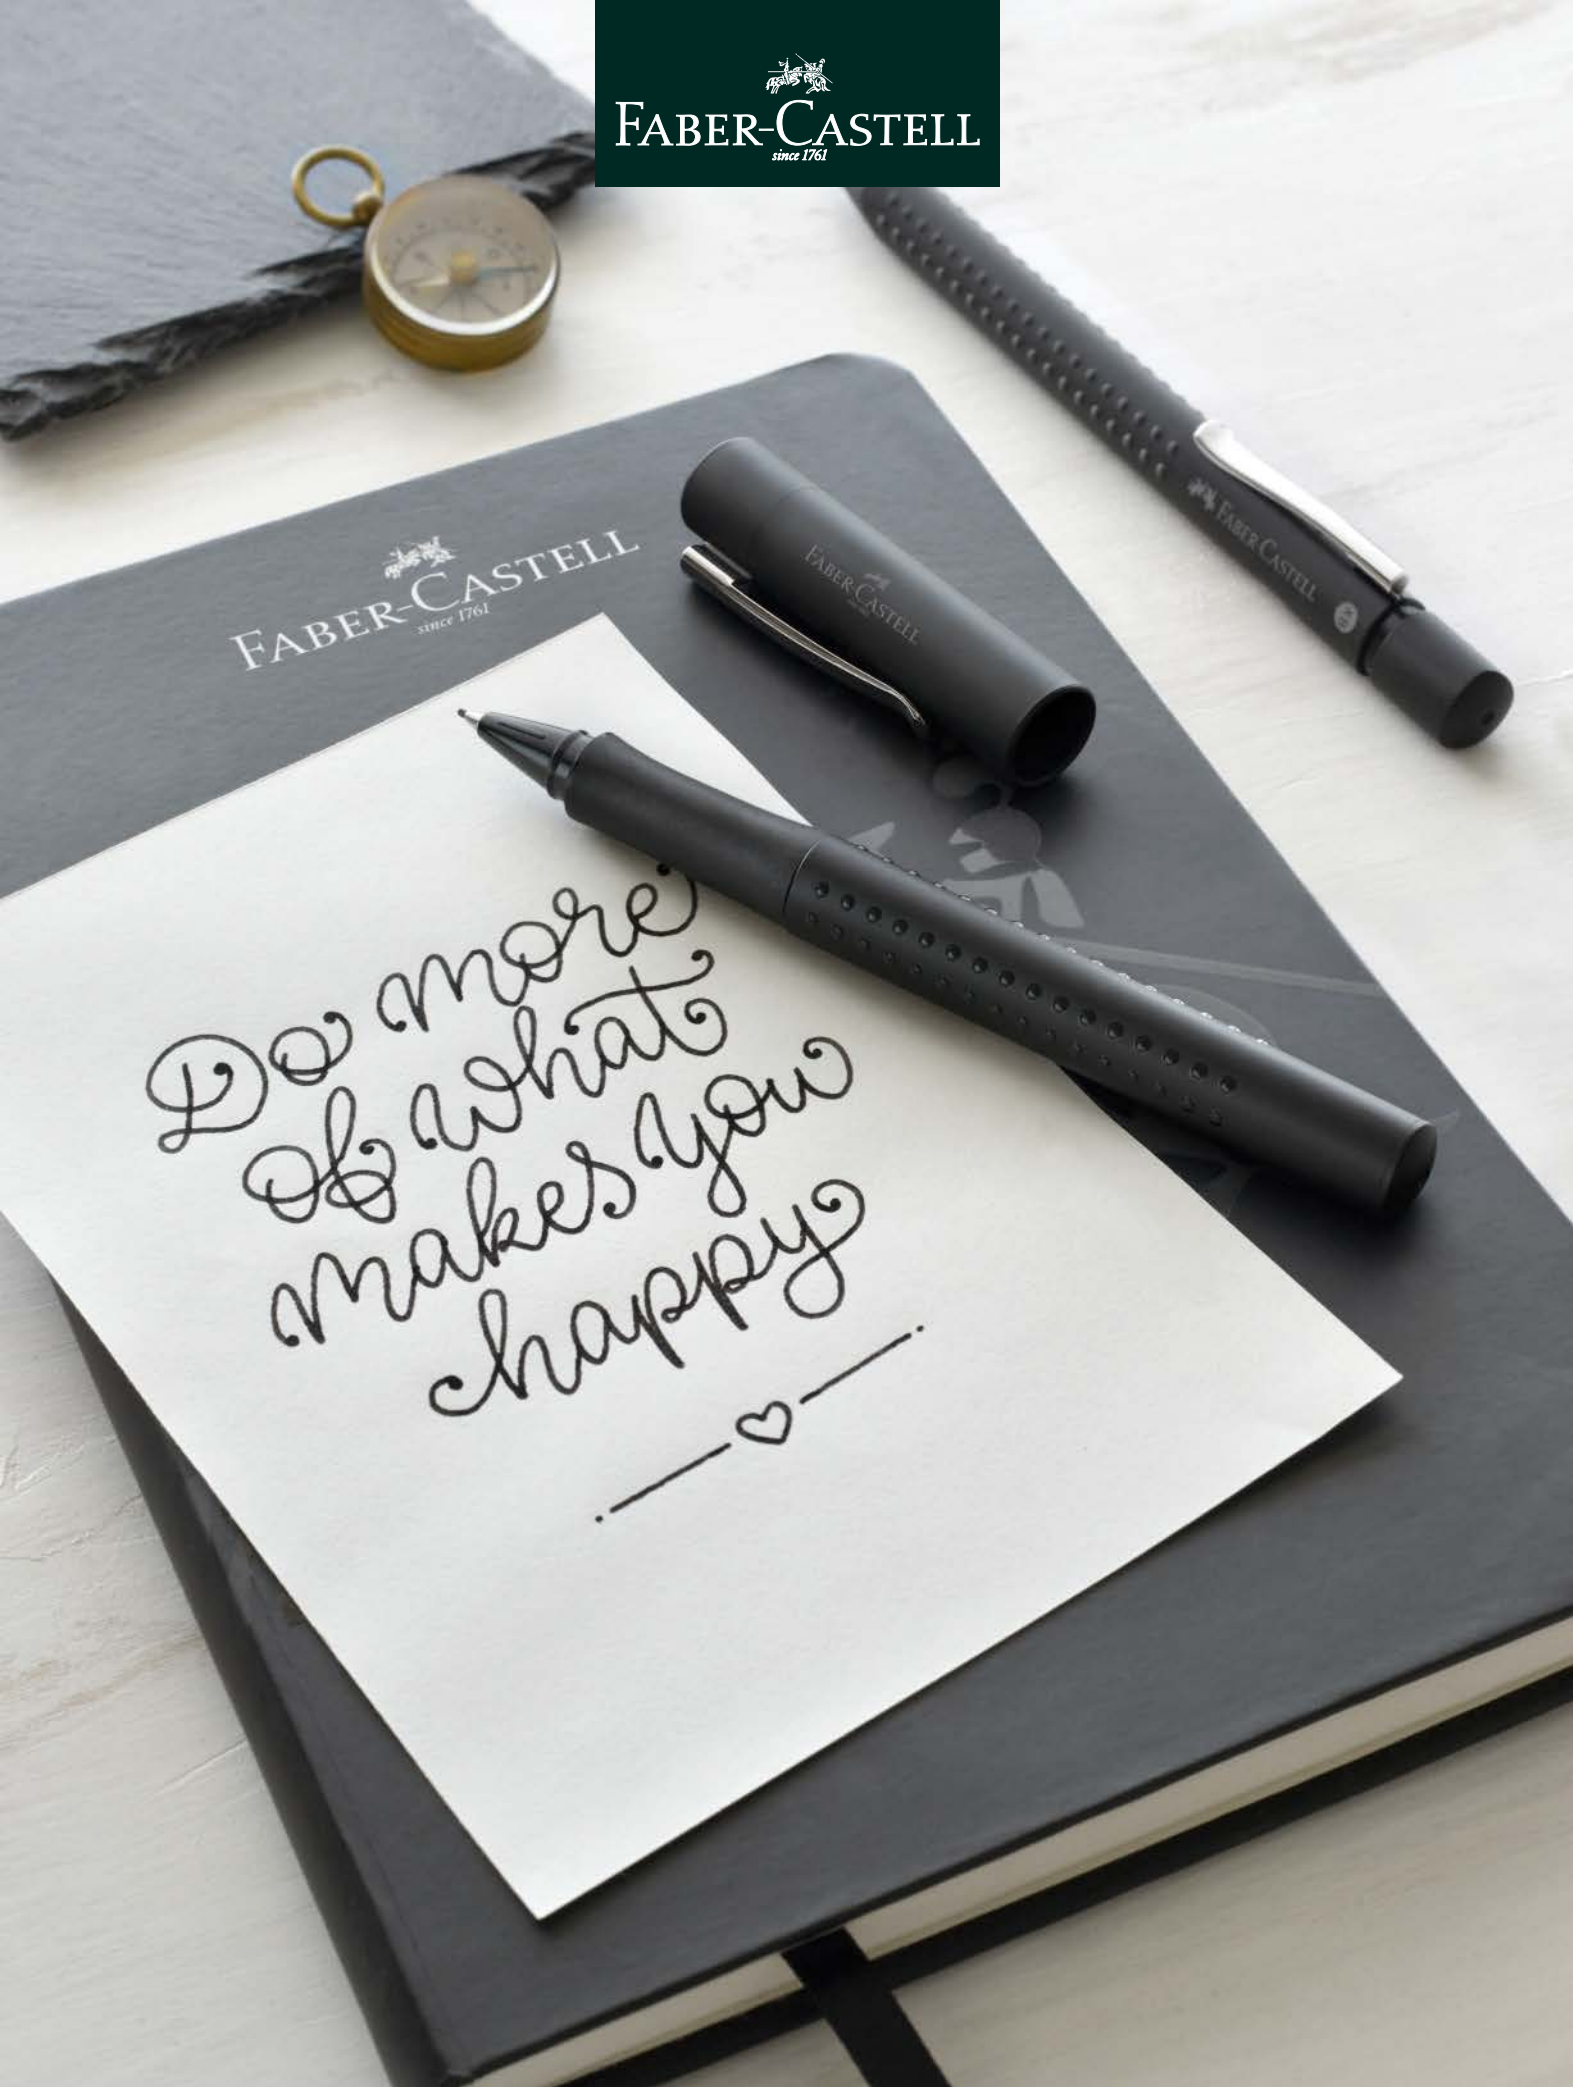 FABER-CASTELL
since 1761
FABER-CASTELL
FABER-CASTELL
since 1761
FABER-CASTELL
Do more
of what
makes you
happy